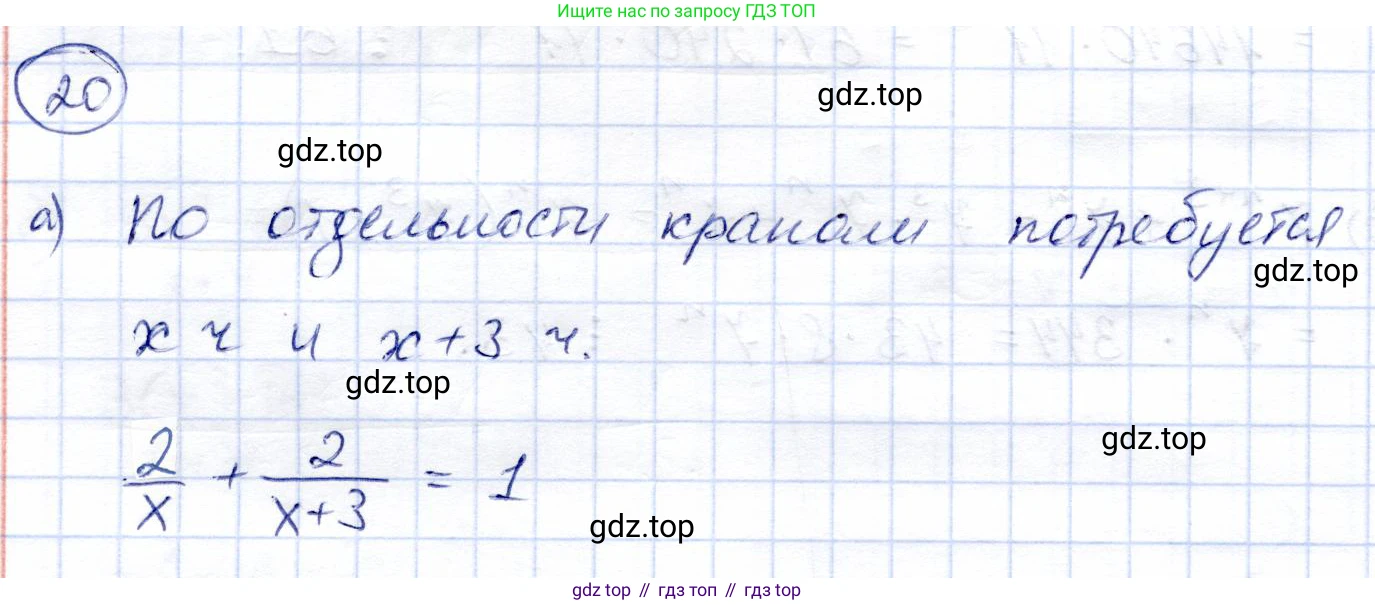 Ищите нас по запросу ГДЗ ТОП
20
gdz.top
gdz.top
а) По отдельности кранам потребуется
gdz.top
x ч и x+3 ч.
gdz.top
gdz.top
2/x + 2/(x+3) = 1
gdz.top
gdz.top // гдз топ // гдз топ